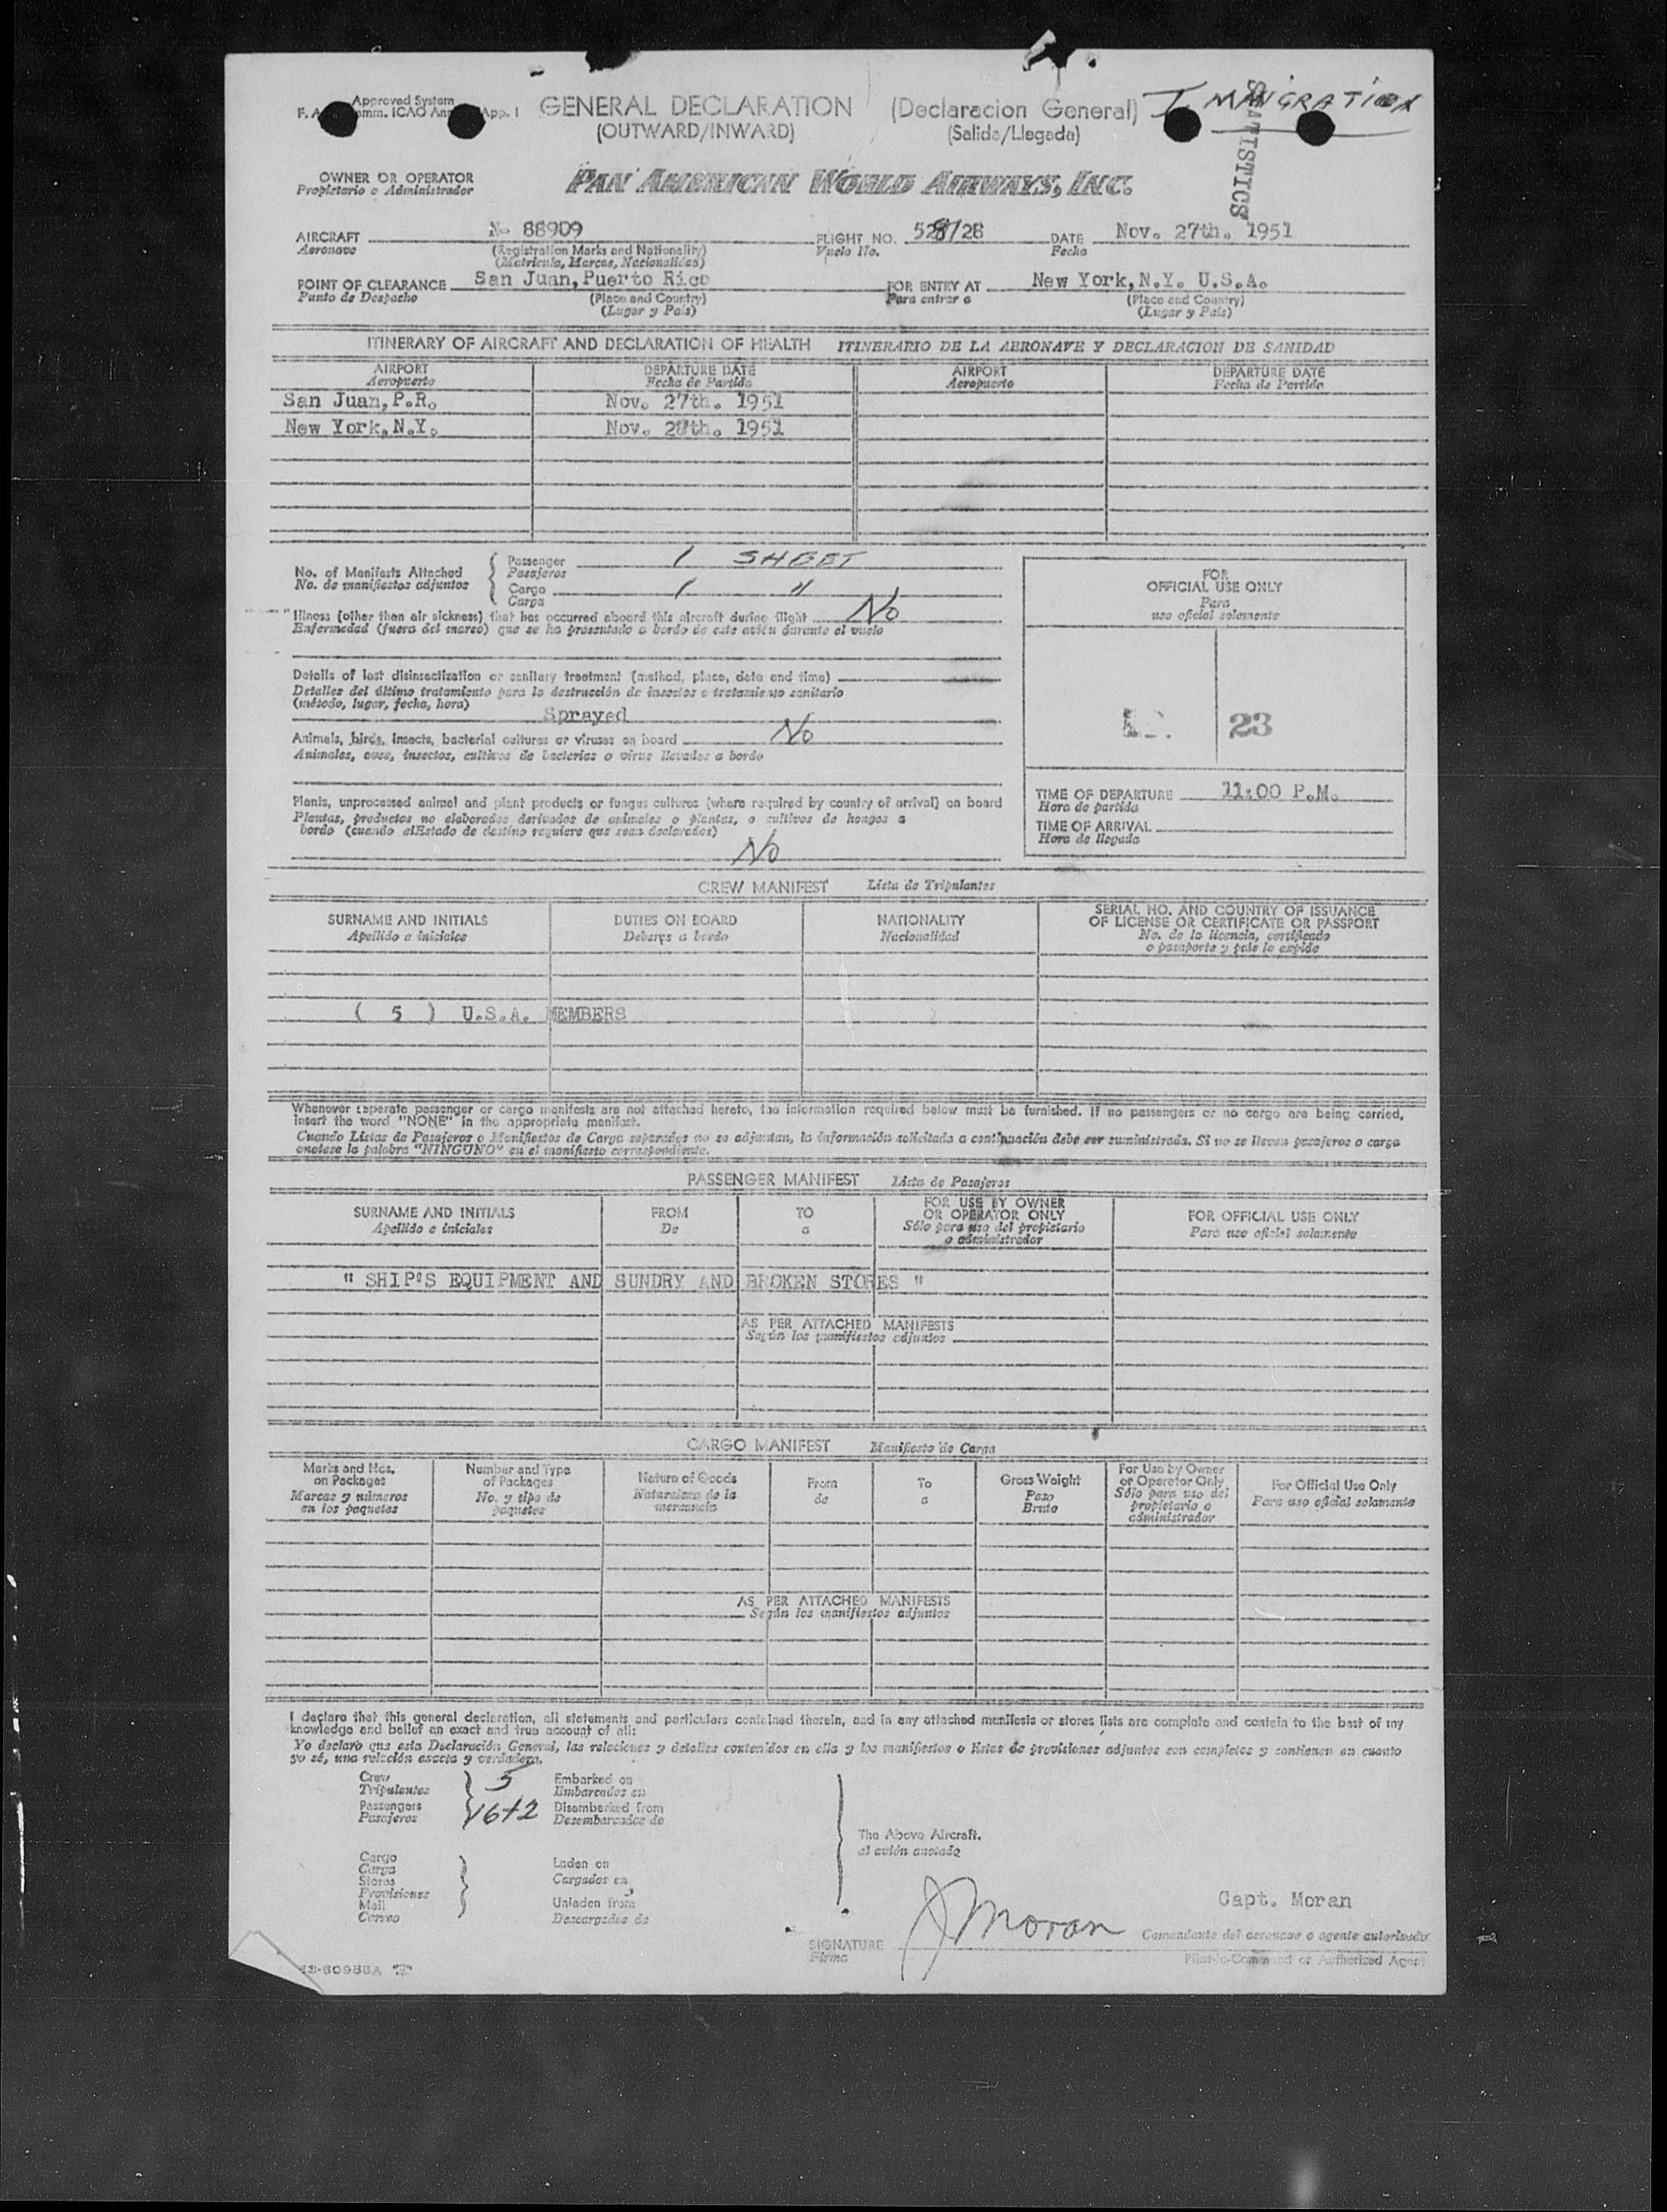 Approved System
GENERAL DECLARATION (Declaracion General) IMMIGRATION
(OUTWARD/INWARD) (Salida/Llegada)
STATISTICS
OWNER OR OPERATOR PAN AMERICAN WORLD AIRWAYS, INC.
Propietario o Administrador
AIRCRAFT No 88909 FLIGHT NO. 528/28 DATE Nov. 27th. 1951
Aeronave (Registration Marks and Nationality) Vuelo No. Fecha
(Matricula, Marcas, Nacionalidad)
POINT OF CLEARANCE San Juan, Puerto Rico FOR ENTRY AT New York, N.Y. U.S.A.
Punto de Despacho (Place and Country) Para entrar a (Place and Country)
(Lugar y País) (Lugar y País)
ITINERARY OF AIRCRAFT AND DECLARATION OF HEALTH ITINERARIO DE LA AERONAVE Y DECLARACION DE SANIDAD
AIRPORT DEPARTURE DATE AIRPORT DEPARTURE DATE
Aeropuerto Fecha de Partida Aeropuerto Fecha de Partida
San Juan, P.R. Nov. 27th. 1951
New York, N.Y. Nov. 28th. 1951
No. of Manifests Attached
No. de manifiestos adjuntos
Passenger 1 SHEET
Pasajeros
Cargo 1 "
Carga
Illness (other than air sickness) that has occurred aboard this aircraft during flight No
Enfermedad (fuera del mareo) que se ha presentado a bordo de este avión durante el vuelo
Details of last disinsectization or sanitary treatment (method, place, date and time)
Detalles del último tratamiento para la destrucción de insectos o tratamiento sanitario
(método, lugar, fecha, hora)
Sprayed
Animals, birds, insects, bacterial cultures or viruses on board No
Animales, aves, insectos, cultivos de bacterias o virus llevados a bordo
Plants, unprocessed animal and plant products or fungus cultures (where required by country of arrival) on board
Plantas, productos no elaborados derivados de animales o plantas, o cultivos de hongos a
bordo (cuando elEstado de destino requiere que sean declarados)
No
FOR
OFFICIAL USE ONLY
Para
uso oficial solamente
23
TIME OF DEPARTURE 11:00 P.M.
Hora de partida
TIME OF ARRIVAL
Hora de llegada
CREW MANIFEST Lista de Tripulantes
SURNAME AND INITIALS DUTIES ON BOARD NATIONALITY SERIAL NO. AND COUNTRY OF ISSUANCE
OF LICENSE OR CERTIFICATE OR PASSPORT
Apellido e iniciales Deberes a bordo Nacionalidad No. de la licencia, certificado
o pasaporte y país lo expide
( 5 ) U.S.A. MEMBERS
Whenever separate passenger or cargo manifests are not attached hereto, the information required below must be furnished. If no passengers or no cargo are being carried,
insert the word "NONE" in the appropriate manifest.
Cuando Listas de Pasajeros o Manifiestos de Carga separados no se adjuntan, la información solicitada a continuación debe ser suministrada. Si no se llevan pasajeros o carga
anotese la palabra "NINGUNO" en el manifiesto correspondiente.
PASSENGER MANIFEST Lista de Pasajeros
SURNAME AND INITIALS FROM TO FOR USE BY OWNER FOR OFFICIAL USE ONLY
OR OPERATOR ONLY
Apellido e iniciales De a Sólo para uso del propietario Para uso oficial solamente
o administrador
" SHIP'S EQUIPMENT AND SUNDRY AND BROKEN STORES "
AS PER ATTACHED MANIFESTS
Según los manifiestos adjuntos
CARGO MANIFEST Manifiesto de Carga
Marks and Nos. Number and Type Nature of Goods From To Gross Weight For Use by Owner For Official Use Only
on Packages of Packages or Operator Only
Marcas y números No. y tipo de Naturaleza de la de a Peso Sólo para uso del Para uso oficial solamente
en los paquetes paquetes mercancia Bruto propietario o
administrador
AS PER ATTACHED MANIFESTS
Según los manifiestos adjuntos
I declare that this general declaration, all statements and particulars contained therein, and in any attached manifests or stores lists are complete and contain to the best of my
knowledge and belief an exact and true account of all:
Yo declaro que esta Declaración General, las relaciones y detalles contenidos en ella y los manifiestos o listas de provisiones adjuntos son completos y contienen en cuanto
yo sé, una relación exacta y verdadera.
Crew 5 Embarked on
Tripulantes Embarcados en
Passengers 16+2 Disembarked from
Pasajeros Desembarcados de
The Above Aircraft.
al avión anotado
Cargo Laden on
Carga Cargados en
Stores
Provisiones
Mail Unladen from
Correo Descargados de
Capt. Moran
SIGNATURE J Moran Comandante del aeronave o agente autorizado
Firma Pilot-in-Command or Authorized Agent